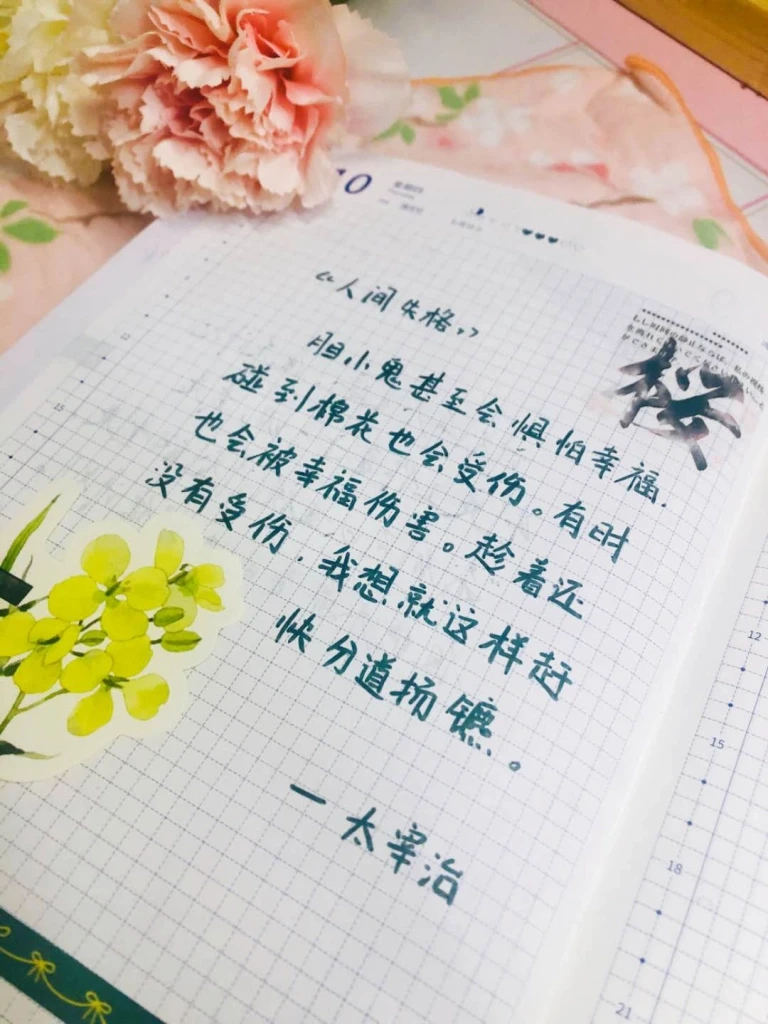 10
星期四
《人间失格》
胆小鬼甚至会惧怕幸福.
碰到棉花也会受伤。有时
也会被幸福伤害。趁着还
没有受伤.我想就这样赶
快分道扬镳。
一太宰治
桜
12
15
12
15
18
21